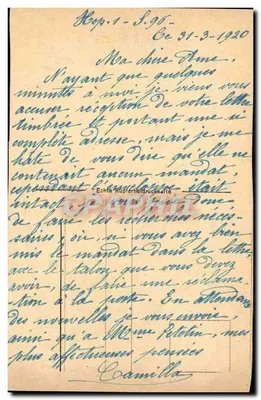 Hop. 1 - S. 96 -
Ce 31-3-1920
Ma chère Ame.
N'ayant que quelques
minutes à moi je viens vous
accuser réception de votre lettre
timbrée et portant une si
complète adresse, mais je me
hâte de vous dire qu'elle ne
contenait aucun mandat,
cependant était
intacte donc
de faire les recherches néces-
saires, ou, si vous avez bien
mis le mandat dans la lettre,
avec le talon que vous devez
avoir, de faire une réclama-
tion à la poste. En attendant
des nouvelles je vous envoie,
ainsi qu'à Mme Petotin, mes
plus affectueuses pensées
Camilla